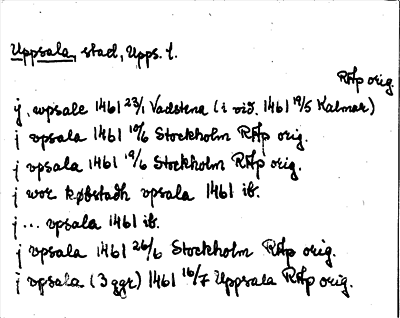 Uppsala, stad, Upps. l.
RAp orig.
j. wpsale 1461 23/1 Vadstena (i vid. 1461 19/5 Kalmar)
j vpsala 1461 10/6 Stockholm RAp orig.
j vpsala 1461 19/6 Stockholm RAp orig.
j wor købstadh vpsala 1461 ib.
j... vpsala 1461 ib.
j vpsala 1461 26/6 Stockholm RAp orig.
j vpsala (3 ggr) 1461 16/7 Uppsala RAp orig.